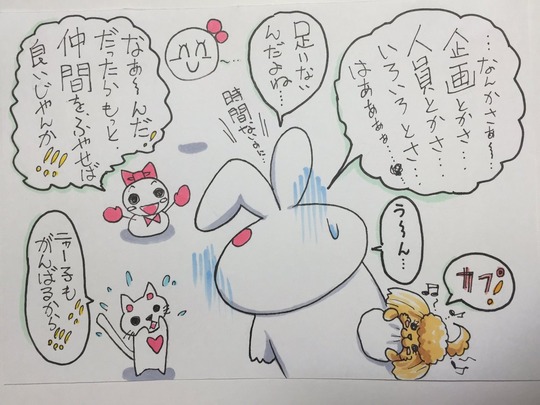 …なんかさぁ〜…
企画とかさ…
人員とかさ…
いろいろとさ…
はぁぁぁぁ…
足いない
んだよね…
時間ないのに…
なぁ〜んだ
だったらもっと…
仲間を、ふやせば
良いじゃんか!!!
う〜ん…
ニャー子も
がんばるから!!!
カプ!